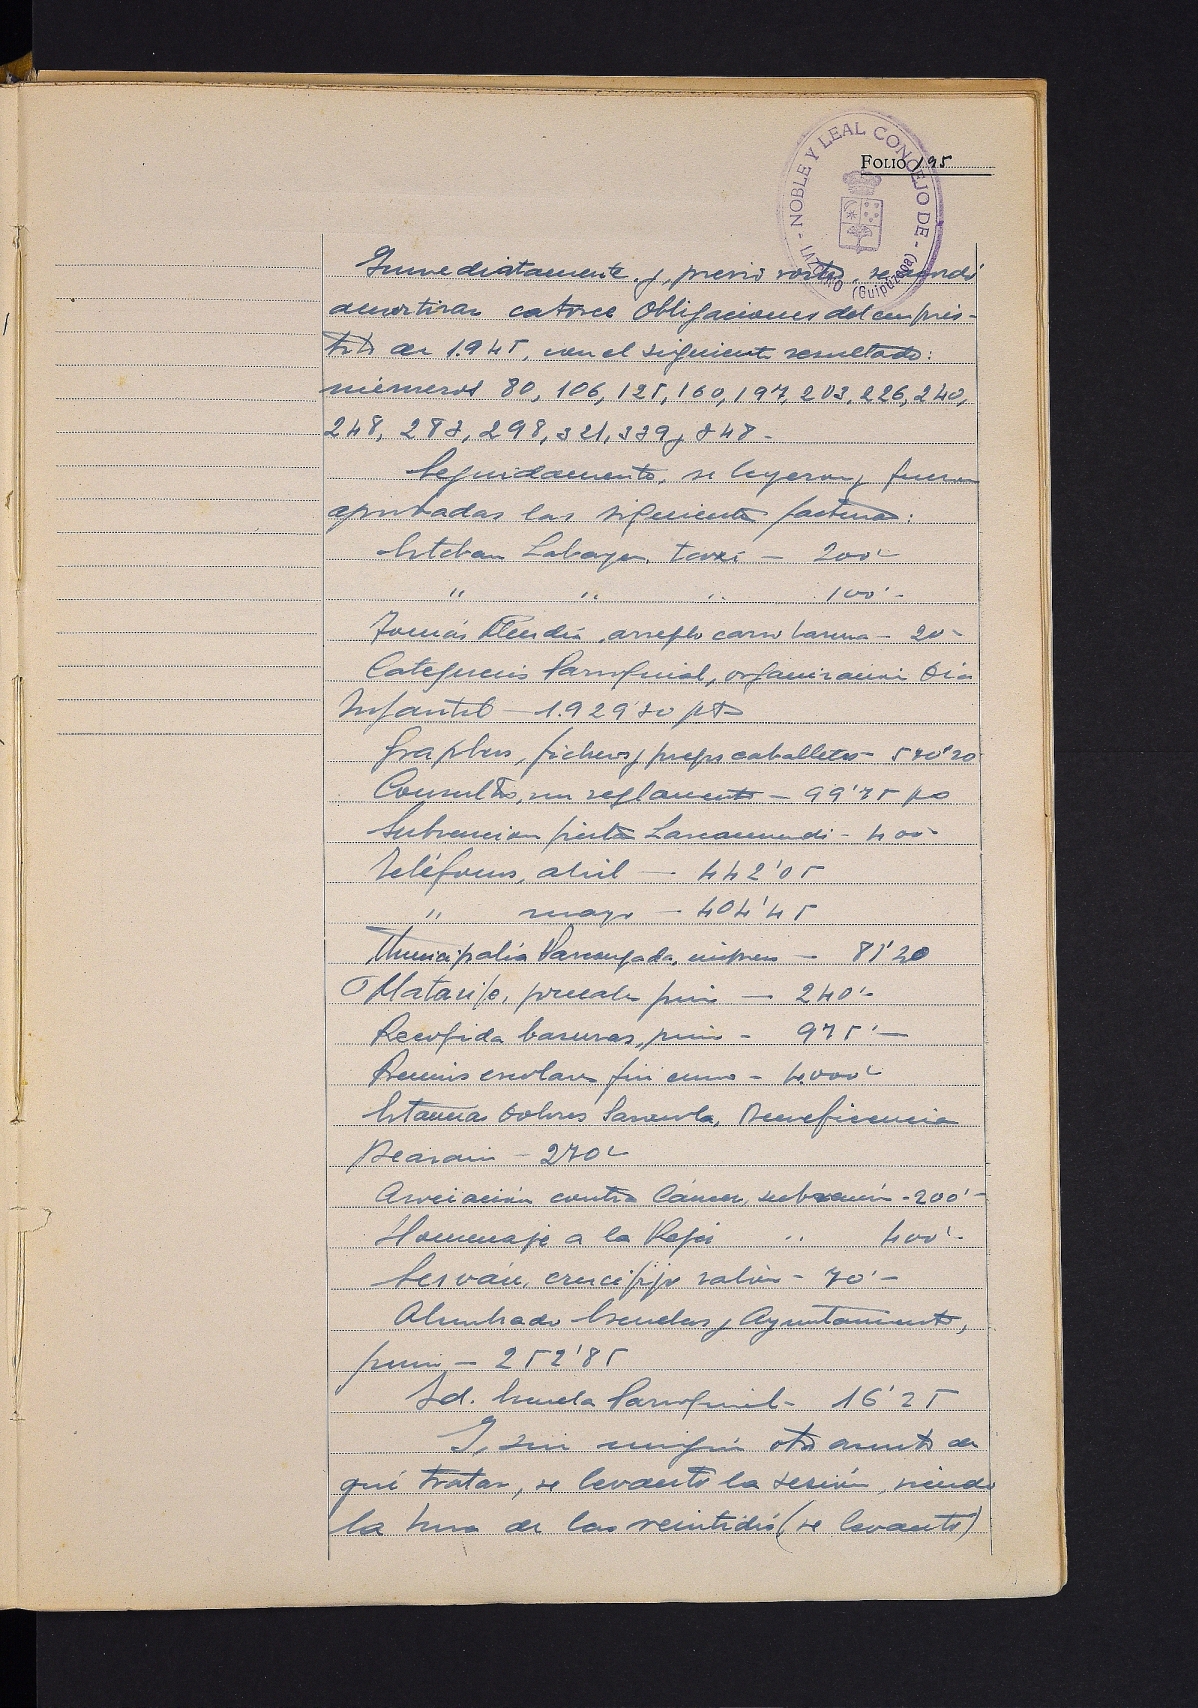 NOBLE Y LEAL CONCEJO DE LAZCANO (Guipúzcoa)
FOLIO 195
Inmediatamente y, previo sorteo, se acordó
amortizar catorce Obligaciones del emprés-
tito de 1.945, con el siguiente resultado:
números 80, 106, 125, 160, 197, 203, 226, 240,
248, 287, 298, 321, 339 y 348.-
Seguidamente, se leyeron y fueron
aprobadas las siguientes facturas:
Esteban Labayen, taxi - 200'-
" " " 100'-
Tomás, arreglo carro basura - 20'-
Catequesis Parroquial, organización Día
Infantil - 1.929'30 pts
Graphos, ficheros y juegos caballetes - 570'20
Consultor, un reglamento - 99'75 pts
Subvención fiesta Lazcaomendi - 400'-
Teléfonos, abril - 442'05
" mayo - 404'45
Municipalia Vascongada, impresos - 81'20
Matarife, jornales junio - 240'-
Recogida basuras, junio - 975'-
Premios escolares fin curso - 4.000'-
Estancias Dolores, Beneficencia
Beasain - 270'-
Asociación contra Cáncer, subvención - 200'-
Homenaje a la Vejez " 400'-
Serván, crucifijo salón - 70'-
Alumbrado Escuelas y Ayuntamiento,
junio - 252'85
Id. Escuela Parroquial - 16'25
Y, sin ningún otro asunto de
qué tratar, se levantó la sesión, siendo
la hora de las veintidós (se levantó)